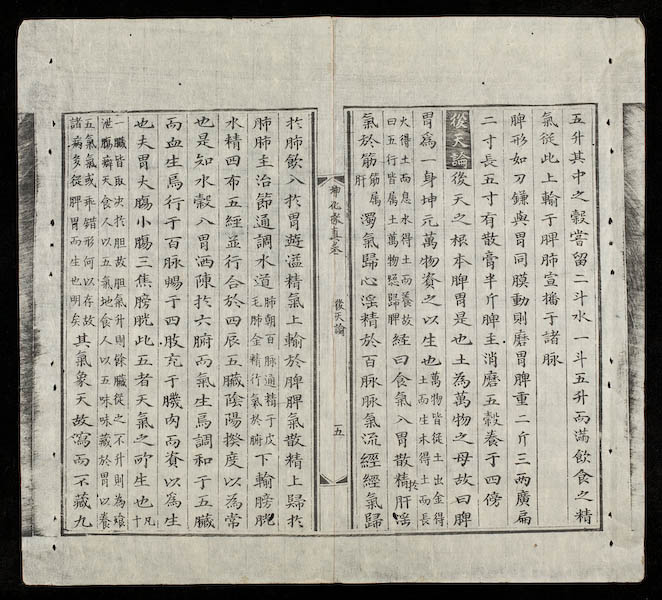 五升其中之穀嘗留二斗水一斗五升而滿飲食之精
氣從此上輸于脾肺宣播于諸脉
脾形如刀鎌與胃同膜動則磨胃脾重二斤三兩廣扁
二寸長五寸有散膏半斤脾主消磨五穀養于四傍
後天論後天之根本脾胃是也土為萬物之母故曰脾
胃爲一身坤元萬物資之以生也萬物皆從土出金得土而生木得土而長
火得土而息水得土而養故曰五行皆属土萬物總歸脾經曰食氣入胃散精於肝滛
氣於筋筋属肝濁氣歸心滛精於百脉脉氣流經經氣歸
後天論
五
扵肺飲入扵胃遊溢精氣上輸扵脾脾氣散精上歸扵
肺肺主治節通調水道肺朝百脉通精于皮毛肺金精行氣扵腑下輸膀胱
水精四布五經並行合於四辰五臟隂陽揆度以為常
也是知水榖入胃洒陳扵六腑而氣生焉調和于五臟
而血生焉行于百脉暢于四肢充于肌肉而資以為生
也夫胃大腸小腸三焦膀胱此五者天氣之所生也凡十
一臟皆取决扵胆故胆氣升則餘臟從之不升則為飱
泄腸癖天食人以五氣地食人以五味味藏扵胃以養
五氣氣或乖錯形何以存故諸病多從脾胃而生也明矣其氣象天故瀉而不藏九